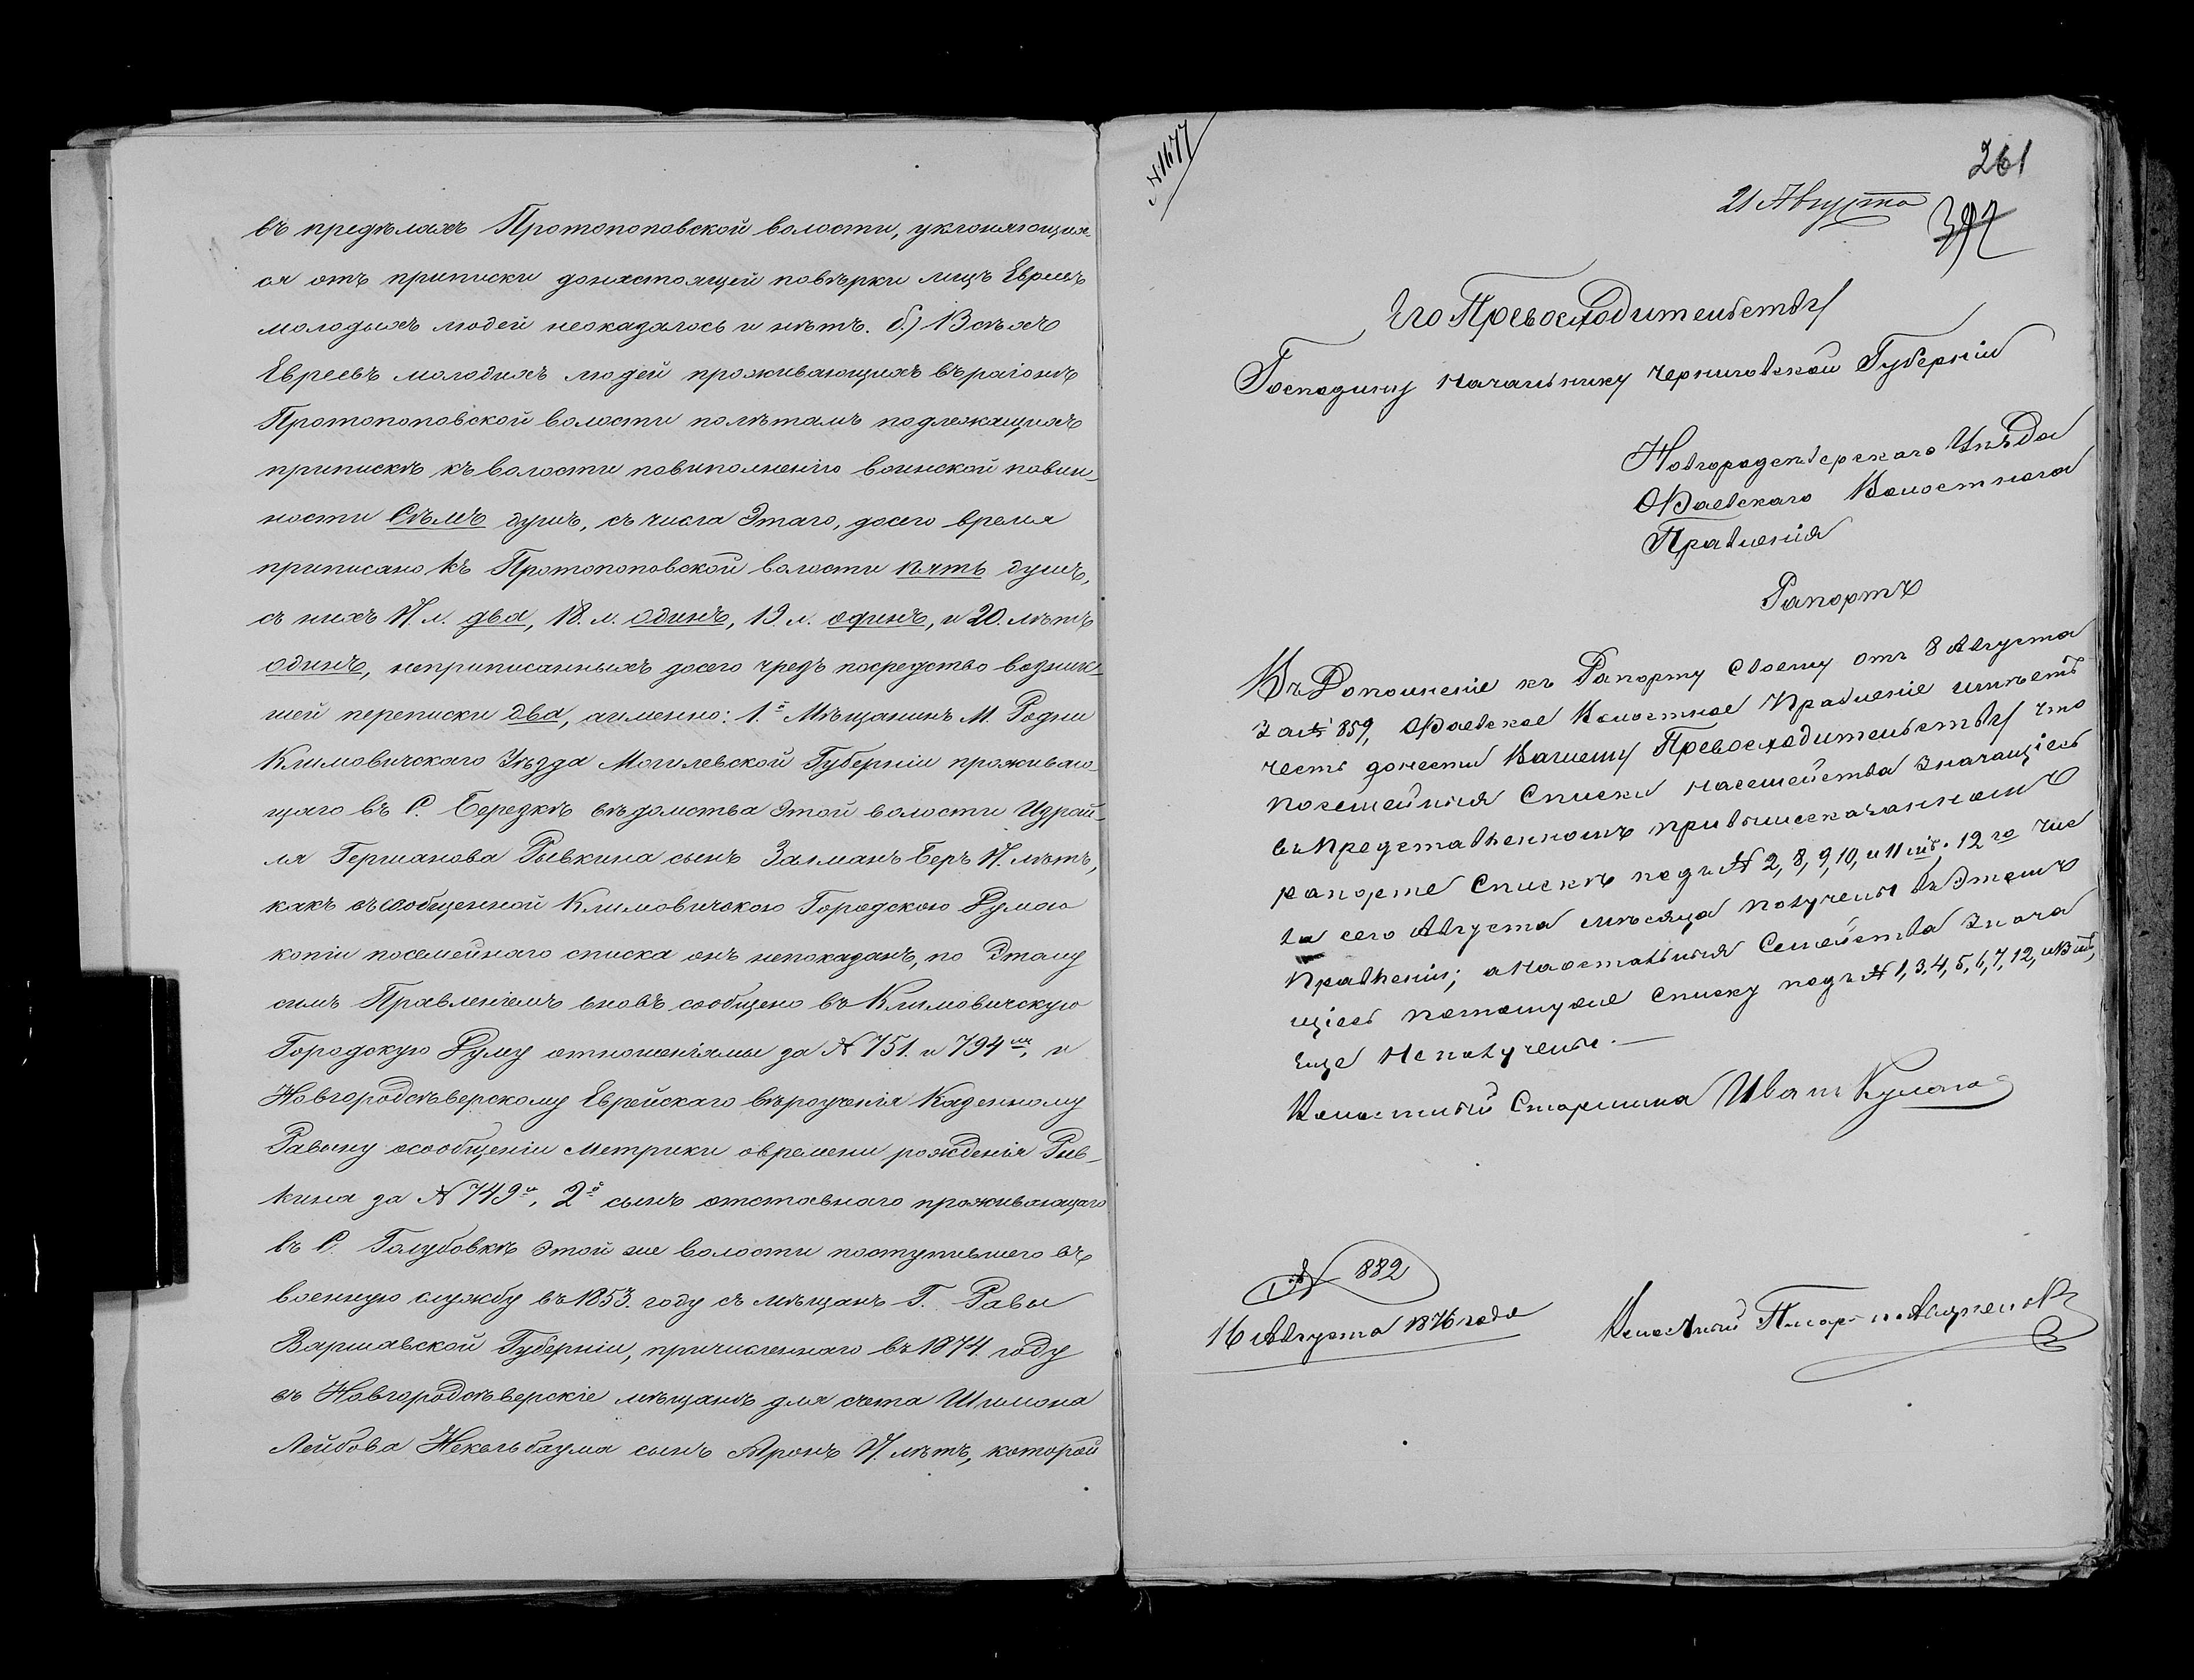 въ предѣлахъ Протопоповской волости, уклоняющих-
ся отъ приписки донастоящей повѣрки лицъ Евреевъ
молодыхъ людей неоказалось и нѣтъ. б) Всѣхъ
Евреевъ молодихъ людей проживающихъ върайонѣ
Протопоповской волости полѣтамъ подлежащихъ
припискѣ къ волости повиполненію воинской повин-
ности Сѣмъ душъ, съ числа Этаго, досего время
приписано къ Протопоповской волости пять душъ,
съ нихъ 17. л. два, 18. л. одинъ, 19. л. одинъ, и 20. лѣтъ
одинъ, неприписанныхъ досего чрезъ посредство возник-
шей переписки два, аименно: 1.й Мѣщанинъ М. Родни
Климовичскаго Уѣзда Могилевской Губерніи проживаю-
щаго въ С. Березкѣ вѣдомства Этой волости Израй-
ля Гершанова Рывкина сынъ Залманъ Беръ 17. лѣтъ,
какъ съсообщенной Климовичскою Городскою Думою
копіи посемейнаго списка онъ непоказанъ, по Этому
симъ Правленіемъ вновь сообщено въ Климовичскую
Городскую Думу отношеніями за № 751. и 794мъ, и
Новгородсѣверскому Еврейскаго вѣроученія Казенному
Равину осообщеніи Метрики овремени рожденія Рыв-
кина за № 749м, 2й сынъ отставнаго проживающаго
въ С. Голубовкѣ Этой же волости поступившего въ
военную службу въ 1853. году съ мѣщанъ Г. Равы
Варшавской Губерніи, причисленнаго въ 1874. году
въ Новгородсѣверскіе мѣщанѣ для счета Шимона
Лейбова Некельбаума сынъ Аронъ 17. лѣтъ, которой
№ 1677
261
21 Августа
Его Превосходительству
Господину Начальнику Черниговской Губерніи
Новгородсѣверскаго Уѣзда
Волостнаго
Правленія
Рапортъ
Въ Дополненіе къ Рапорту Своему отъ 8 Августа
За № 859, Волостное Правленіе имѣетъ
честь донести Вашему Превосходительству что
посемейныя Списки насемейства Значащіесь
въпредставленномъ привышесказанномъ
рапорте Спискѣ подъ № 2, 8, 9, 10, и 11мъ, 12го Чис
ла сего Августа мѣсяца получены въЭтомъ
Правленіи; анаостальныя Семейства Знача
щіесь потомуже Списку подъ № 1, 3, 4, 5, 6, 7, 12, и 13мъ,
еще Неполучены.—
Волостный Старшина Иванъ Кулага
№ 882
16 Августа 1876 года
Волостный Писарь